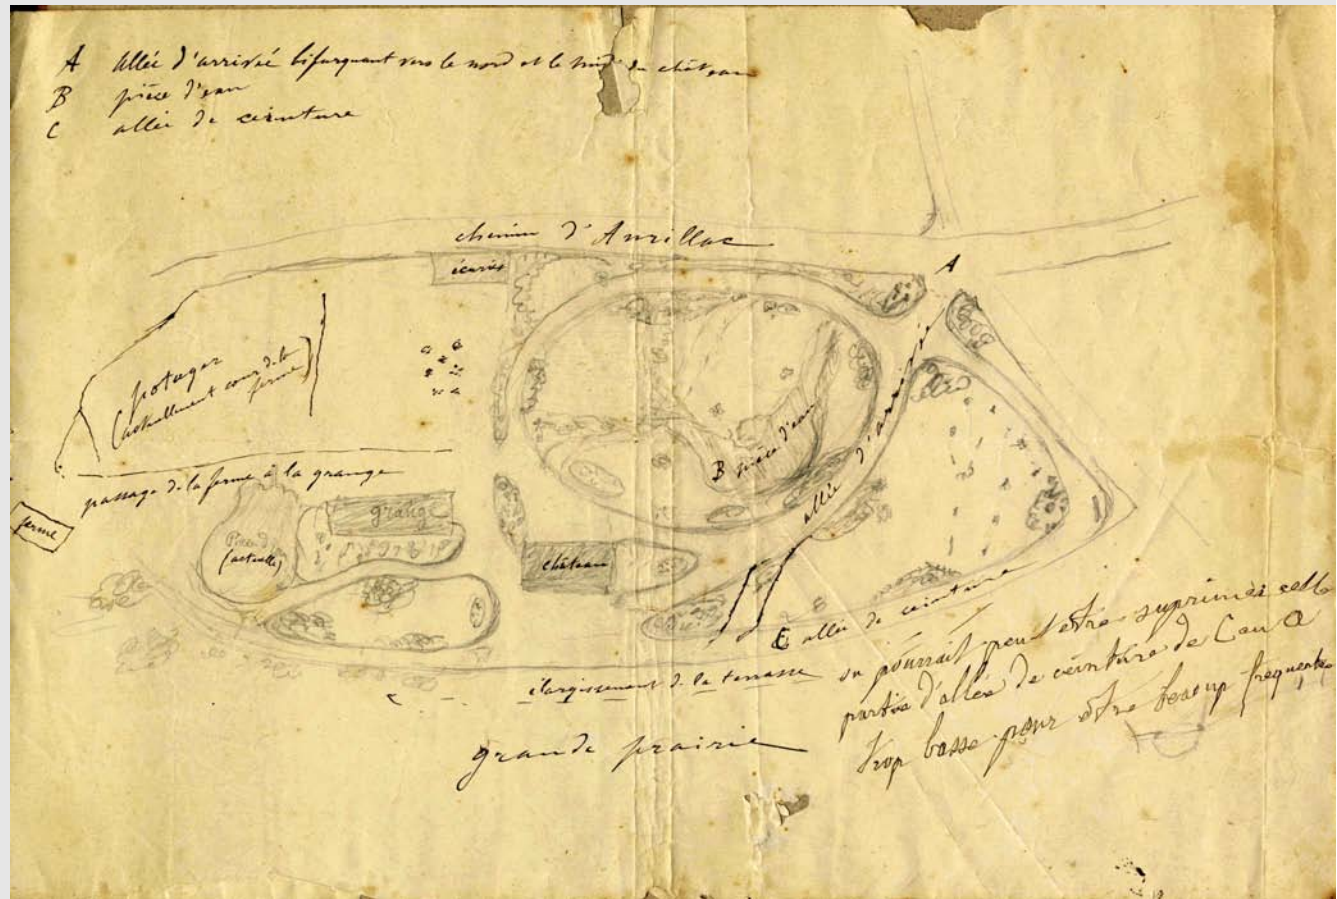 A allée d'arrivée bifurquant vers le nord et le midi du château
B pièce d'eau
C allée de ceinture
chemin d'Aurillac
écuries
A
potager
(actuellement cour de la
ferme)
B pièce d'eau
allée d'arrivée
passage de la ferme à la grange
ferme
grange
(actuelle)
château
C allée de ceinture
élargissement de la terrasse
grande prairie
on pourrait peut être suprimer cette
partie d'allée de ceinture de C en A
trop basse pour être beaucup frequentée